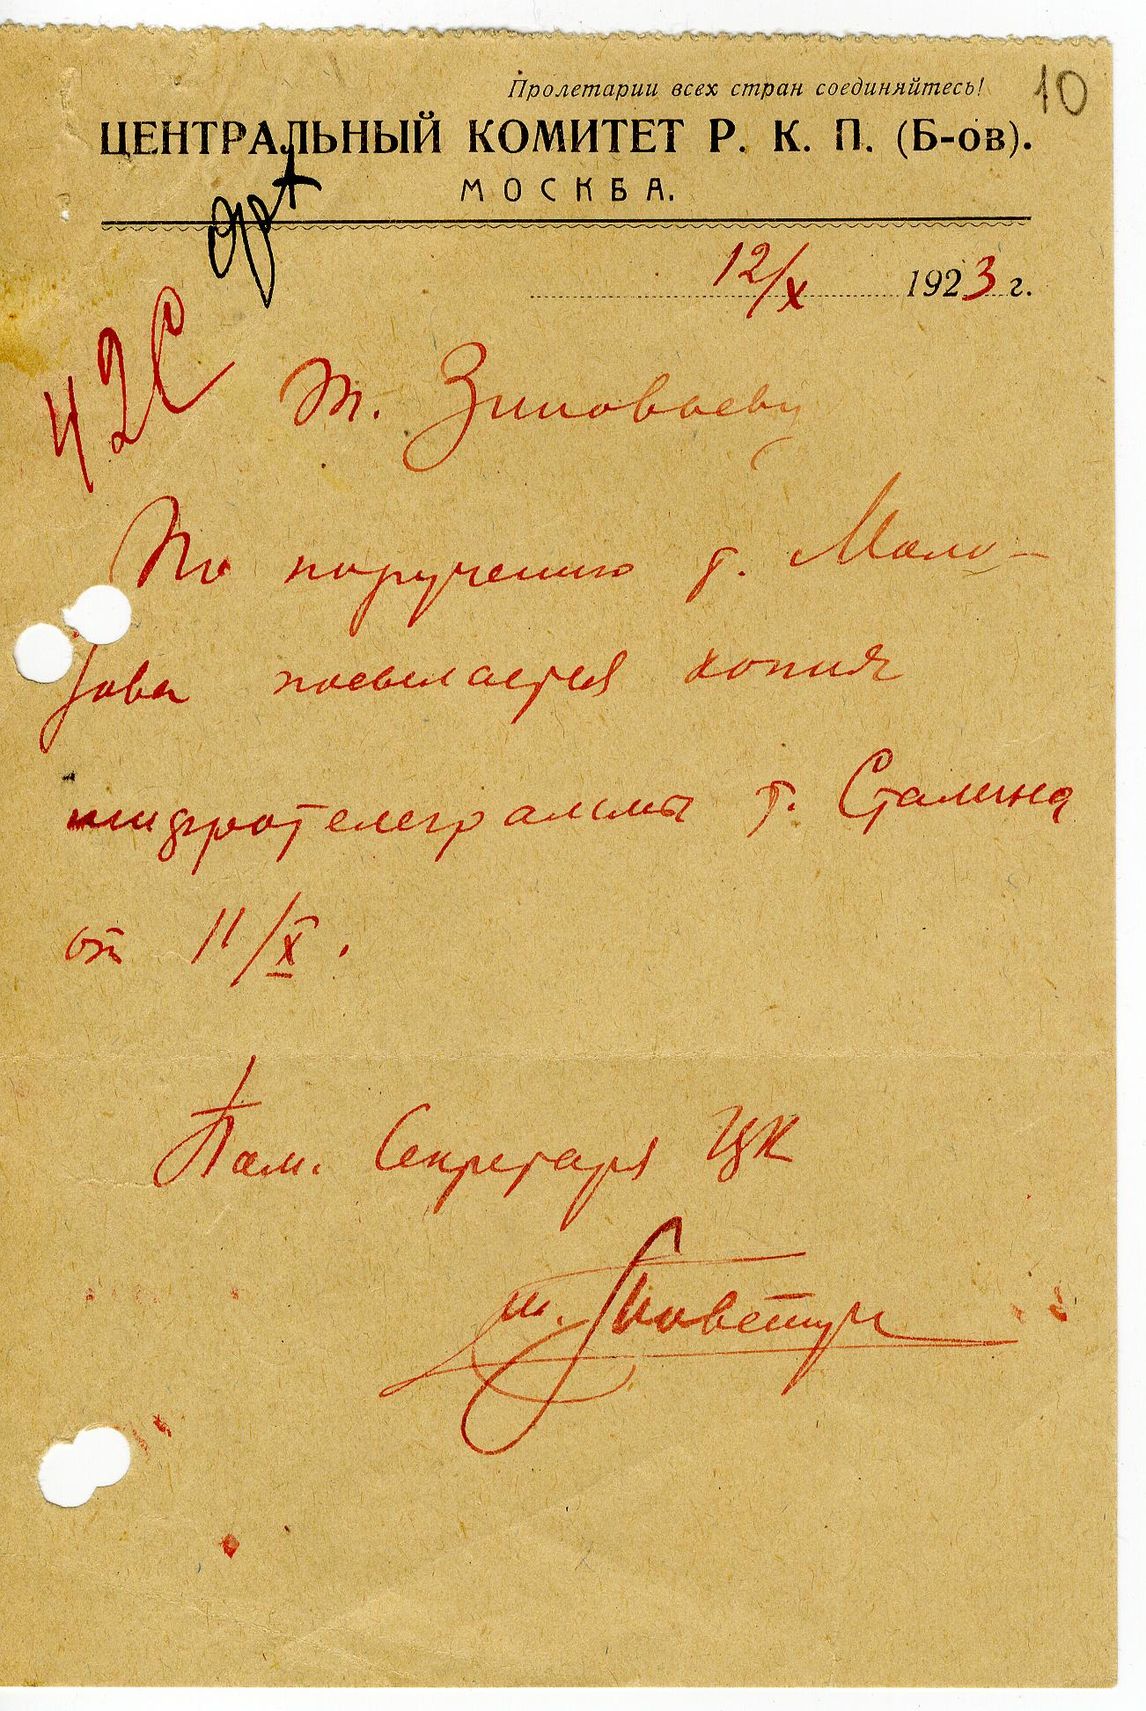 10
Пролетарии всех стран соединяйтесь!
ЦЕНТРАЛЬНЫЙ КОМИТЕТ Р. К. П. (Б-ов).
МОСКВА.
12/X 1923 г.
42С
т. Зиновьеву
По поручению т. Моло-
това посылается копия
шифротелеграммы т. Сталина
от 11/X.
Пом. Секретаря ЦК